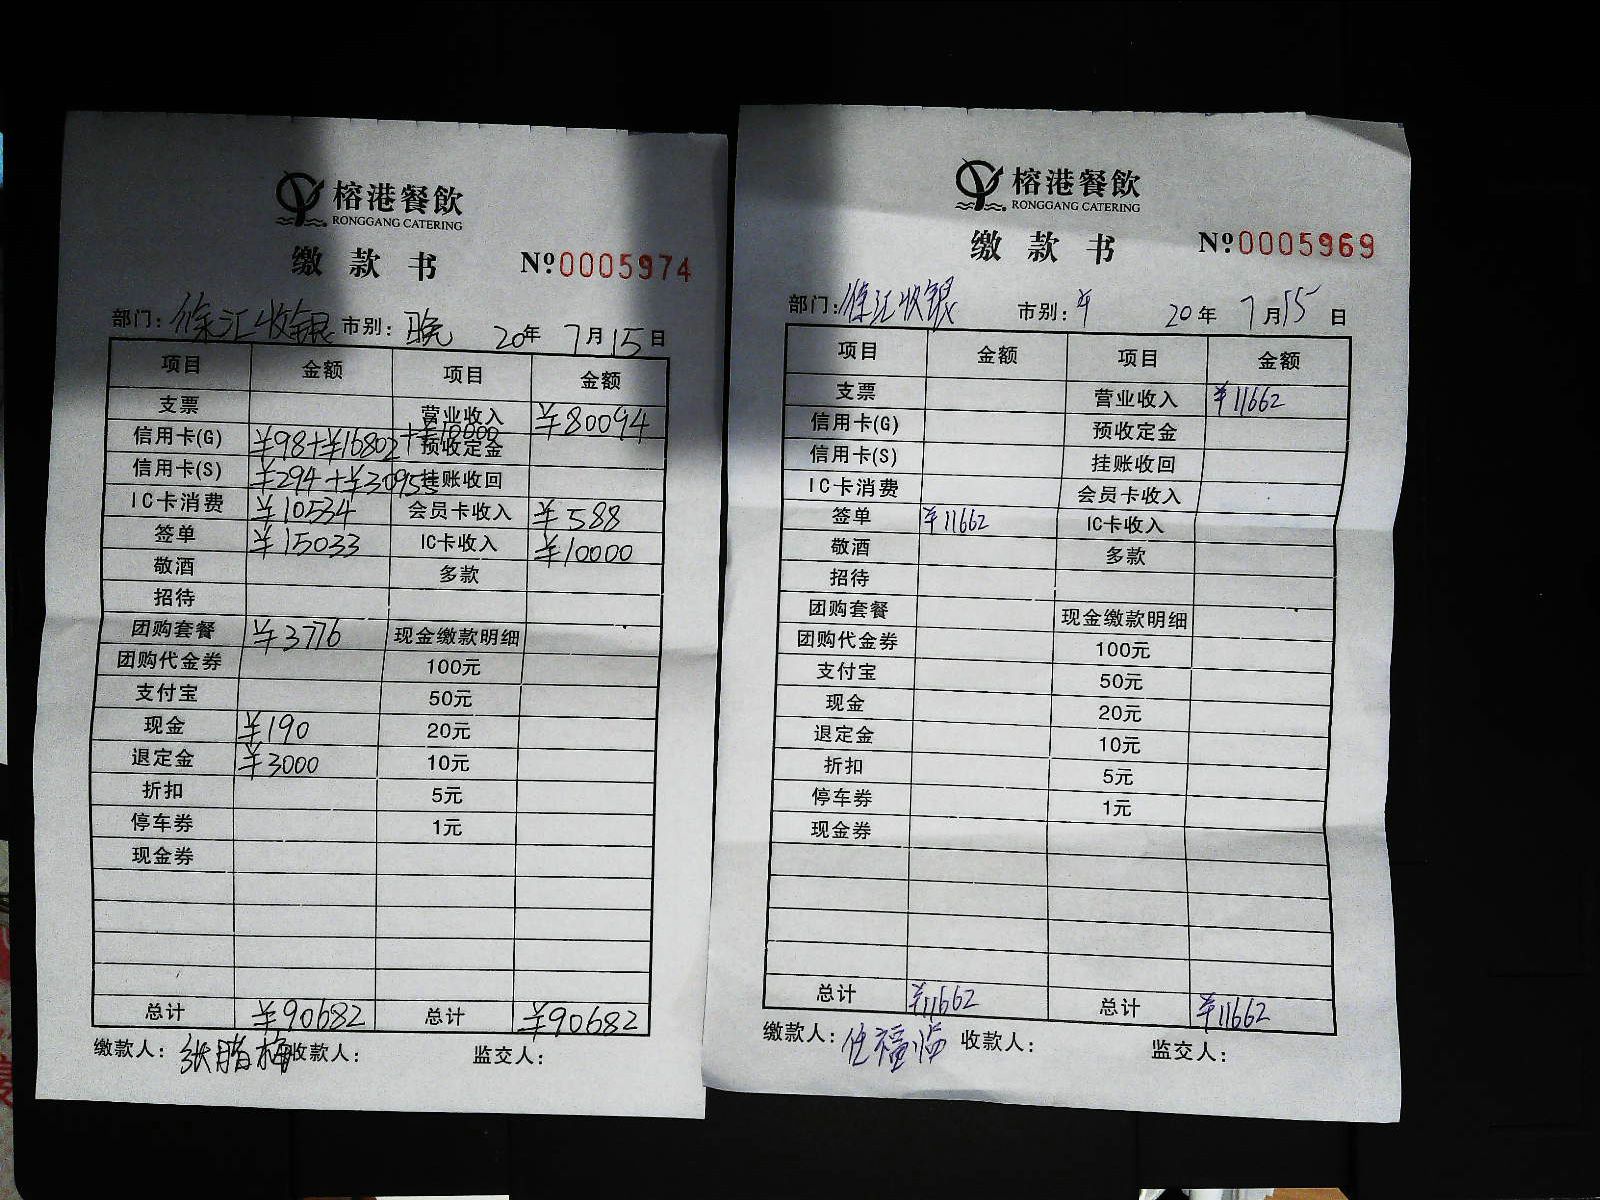 榕港餐飲
RONGGANG CATERING
缴款书 Nº0005974
部门: 徐汇收银 市别: 晚 20年 7月15日
项目 金额 项目 金额
支票 营业收入 ¥80094
信用卡(G) ¥98+¥16802+¥10000 预收定金
信用卡(S) ¥294+¥30955 挂账收回
IC卡消费 ¥10534 会员卡收入 ¥588
签单 ¥15033 IC卡收入 ¥10000
敬酒 多款
招待
团购套餐 ¥3776 现金缴款明细
团购代金券 100元
支付宝 50元
现金 ¥190 20元
退定金 ¥3000 10元
折扣 5元
停车券 1元
现金券
总计 ¥90682 总计 ¥90682
缴款人: 张腊梅 收款人: 监交人:
榕港餐飲
RONGGANG CATERING
缴款书 Nº0005969
部门: 徐汇收银 市别: 午 20年 7月15日
项目 金额 项目 金额
支票 营业收入 ¥11662
信用卡(G) 预收定金
信用卡(S) 挂账收回
IC卡消费 会员卡收入
签单 ¥11662 IC卡收入
敬酒 多款
招待
团购套餐 现金缴款明细
团购代金券 100元
支付宝 50元
现金 20元
退定金 10元
折扣 5元
停车券 1元
现金券
总计 ¥11662 总计 ¥11662
缴款人: 任福临 收款人: 监交人: